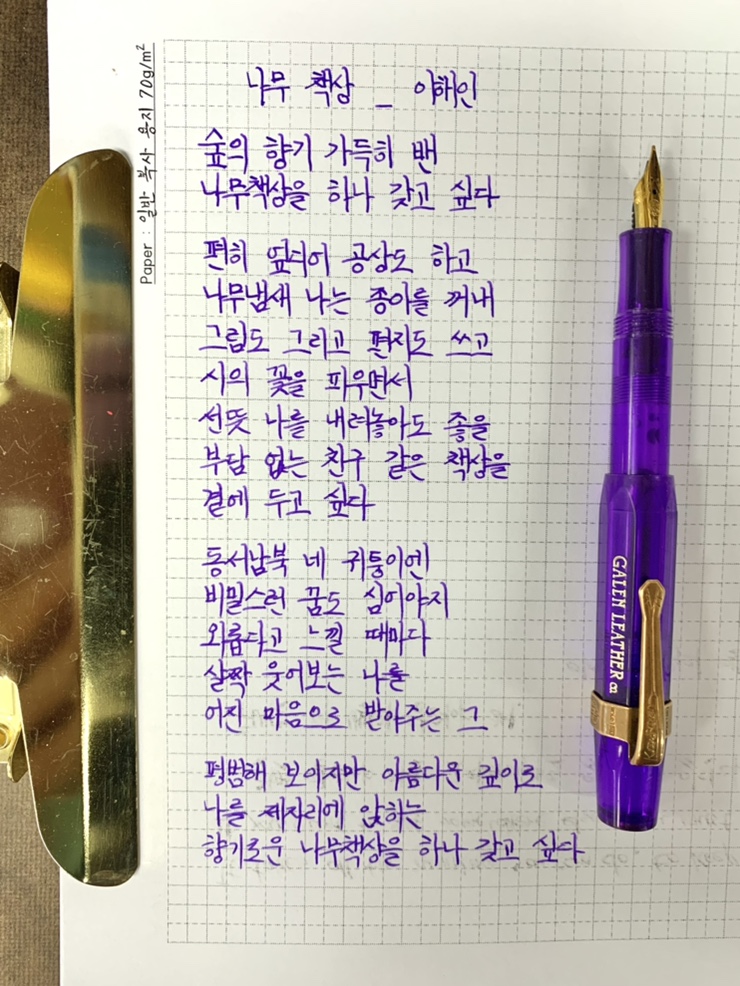 Paper : 일반 복사 용지 70g/m²
나무 책상 _ 이해인
숲의 향기 가득히 밴
나무책상을 하나 갖고 싶다
편히 엎디어 공상도 하고
나무냄새 나는 종이를 꺼내
그림도 그리고 편지도 쓰고
시의 꽃을 피우면서
선뜻 나를 내려놓아도 좋을
부담 없는 친구 같은 책상을
곁에 두고 싶다
동서남북 네 귀퉁이엔
비밀스런 꿈도 심어야지
외롭다고 느낄 때마다
살짝 웃어보는 나를
어진 마음으로 받아주는 그
평범해 보이지만 아름다운 깊이로
나를 제자리에 앉히는
향기로운 나무책상을 하나 갖고 싶다
GALEN LEATHER co